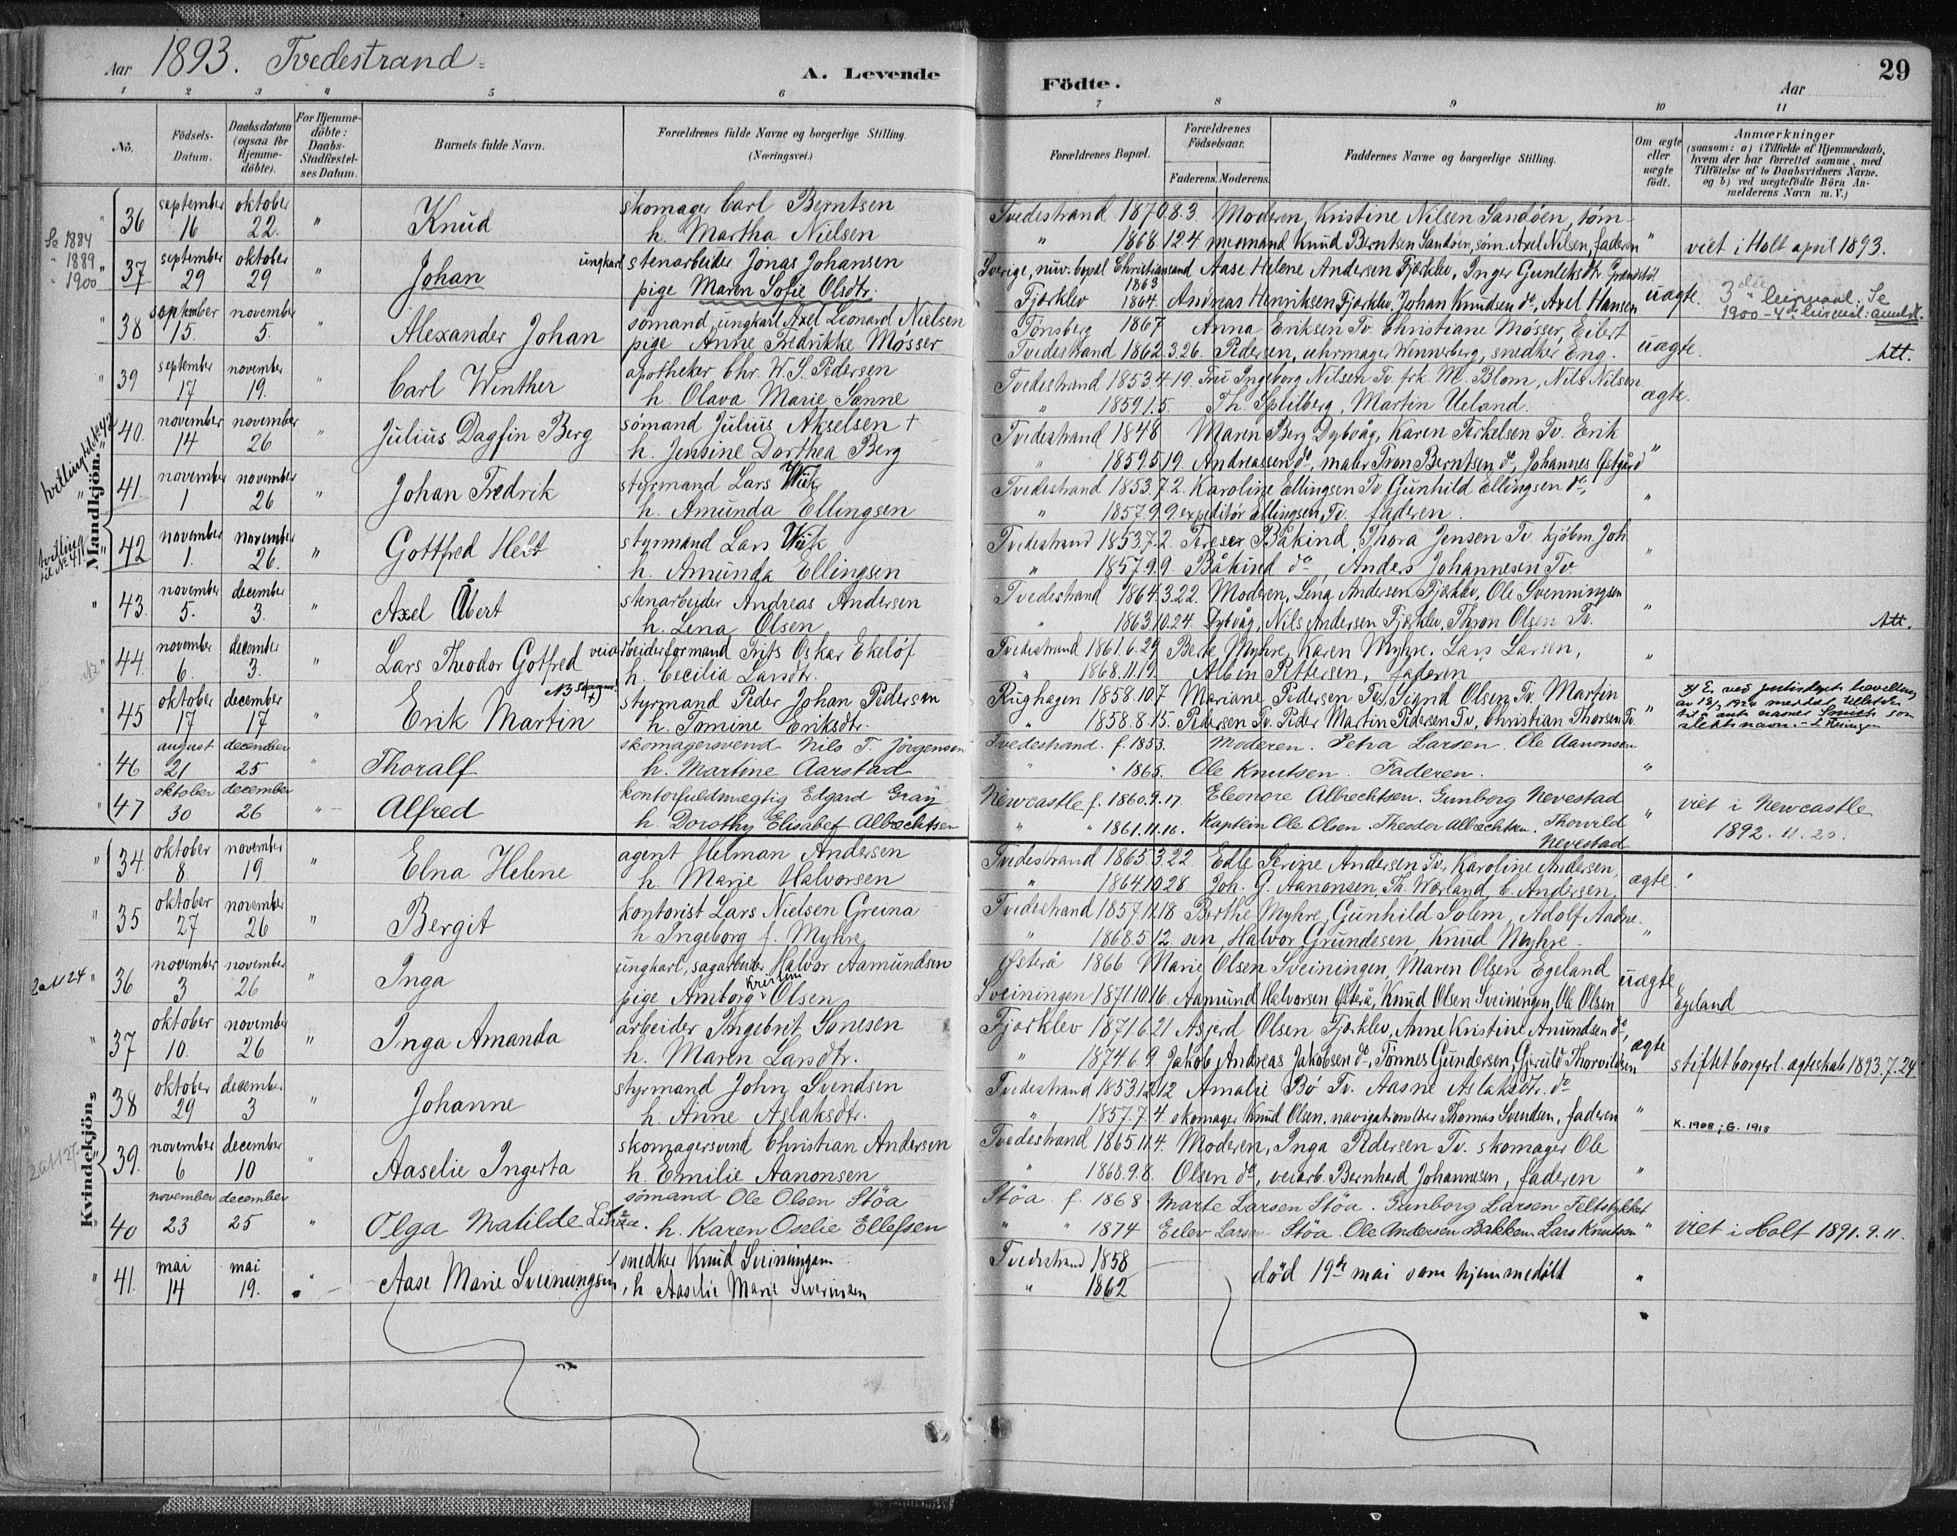 Aar 1893. Tvedestrand
A. Levende
Födte.
Aar
29
1 2 3 4 5 6 7 8 9 10 11
No.
Födsels-Datum.
Daabsdatum (ogsaa for Hjemmedöbte).
For Hjemmedöbte: Daabs-Stadfæstelses Datum.
Barnets fulde Navn.
Forældrenes fulde Navne og borgerlige Stilling. (Næringsvei.)
Forældrenes Bopæl.
Forældrenes Födselsaar.
Faderens. Moderens.
Faddernes Navne og borgerlige Stilling.
Om ægte eller uægte födt.
Anmærkninger
(saasom: a) i Tilfælde af Hjemmedaab, hvem der har forrettet samme, med Tilföielse af to Daabsvidners Navne, og b) ved uægtefödte Börn Anmelderens Navn m. V.)
Mandkjön.
Se 1884
" 1889
" 1900
36 september 16 oktober 22. " Knud skomager Carl Berntsen Tvedestrand 1870.8.3. Moderen, Kristine Nilsen Sandöen, töm-
h. Martha Nielsen " 1868.12.4. mermand Knud Berntsen Sandöen, söm. Axel Nilsen, faderen " viet i Holt april 1893.
37 september 29 oktober 29 " Johan ungkarl stenarbeider Jonas Johansen Sverige, nuv. bopæl Christiansand 1863 Aase Helene Andersen Fjærklev, Inger Gunleksdtr.
pige Maren Sofie Olsdtr. Fjærklev 1864. Andreas Henriksen Fjærklev, Johan Knudsen do, Axel Hansen uægte.
38 september 15. november 5. " Alexander Johan sömand, ungkarl Axel Leonard Nielsen Tönsberg 1867 Anna Eriksen Tv. Christiane Mösser, Eilert
pige Anne Fredrikke Mösser Tvedestrand 1862.3.26. Pedersen, uhrmager Wennerberg, snedker Eng. uægte. Att.
39 september 17 november 19. " Carl Winther apotheker Chr. W. S. Pedersen Tvedestrand 1853.4.19. Fru Ingeborg Nilsen Tv. frk. M. Blom, Nils Nilsen
h. Olava Marie Sanne " 1859.1.5. Th. Splilberg, Martin Ueland. ægte.
40. november 14 november 26 " Julius Dagfin Berg sömand Julius Akselsen + Tvedestrand 1848 Maren Berg Dybvåg, Karen Terkelsen Tv. Erik
h. Jensine Dorthea Berg " 1859.5.19. Andreassen do, maler Tron Berntsen do, Johannes "
41. november 1 november 26 " Johan Fredrik styrmand Lars Wiik Tvedestrand 1853.7.2. Karoline Ellingsen Tv. Gunhild Ellingsen do,
h. Amunda Ellingsen " 1857.9.9. expeditör Ellingsen, Tv. faderen. "
tvilling til No 41.
42 november 1. november 26. " Gottfred styrmand Lars Wiik Tvedestrand 1853.7.2. Båkind, Thora Jensen Tv. kjöbm. Joh.
h. Amunda Ellingsen " 1857.9.9. Båkind do, Anders Johannesen Tv. "
43. november 5. december 3. " Axel Åbert stenarbeider Andreas Andersen Tvedestrand 1864.3.22. Moderen, Lena Andersen Fjærklev, Ole Svenningsen
h. Lena Olsen " 1863.10.24. Dybvåg, Nils Andersen Fjærklev, Thron Olsen Tv. " Att.
44. november 6. december 3. " Lars Theodor Gotfred veiarbeiderformand Frits Oskar Ekelöf Tvedestrand 1861.6.29 Berte Myhre, Karen Myhre, Lars Larsen,
h. Cecilia Larsdtr. " 1868.11.19. Albin Pettersen, faderen "
45 oktober 17 december 17 " Erik Martin styrmand Peder Johan Pedersen Rughagen 1858.10.7 Mariane Pedersen Tv. Signd Olsen Tv. Martin
h. Tomine Eriksdtr. " 1858.8.15. Pedersen Tv. Peder Martin Pedersen Tv, Christian Thorsen Tv. "
46 august 21 december 25 " Thoralf skomagersvend Nils T. Jörgensen Tvedestrand f. 1853. Moderen. Petra Larsen. Ole Aanonsen
h. Martine Aarstad " " 1865. Ole Knutsen. Faderen. "
47 oktober 30 december 26 " Alfred kontorfuldmægtig Edgard Gray Newcastle f. 1860.9.17. Eleonore Albrechtsen. Gunborg Nevestad
h. Dorothy Elisabet Albrechtsen " " 1861.11.16. Kaptein Ole Olsen. Theodor Albrechtsen. Thorvild Nevestad " viet i Newcastle 1892.11.20.
Kvindekjön.
34. oktober 8 november 19 " Elna Helene agent Herman Andersen Tvedestrand 1865.3.22. Edle Serine Andersen Tv. Karoline Andersen,
h. Marie Halvorsen " 1864.10.28. Joh. G. Aanonsen, Th. Wærland, C. Andersen, ægte "
35 oktober 27 november 26 " Bergit kontorist Lars Nielsen Greina Tvedestrand 1857.11.18 Berthe Myhre, Gunhild Solem, Adolf Aadne-
h Ingeborg f. Myhre " 1868.5.12. sen, Halvor Grundesen, Knud Myhre "
36 november 3 november 26 " Inga ungkarl, sagarbeider Halvor Aamundsen Østerå 1866 Marie Olsen Sveiningen, Maren Olsen Egeland
pige Amborg Kristine Olsen Sveiningen 1871.10.16. Aamund Halvorsen Østerå, Knud Olsen Sveiningen, Ole Olsen uægte Egeland
37 oktober 10. november 26 " Inga Amanda arbeider Ingebret Sonesen Fjærklev 1871.6.21 Asjerd Olsen Fjærklev, Anne Kristine Amundsen do,
h. Maren Larsdtr. " 1874.6.9 Jakob Andreas Jakobsen do, Tönnes Gundersen, Gjeruld Thorvildsen ægte stiftet borgerl. ægteskab 1893.7.24.
38 oktober 29 december 3 " Johanne styrmand John Svendsen Tvedestrand 1853.12.12 Amalie Bö Tv. Aasne Aslaksdtr. do
h. Anne Aslaksdtr. " 1857.7.4. skomager Knud Olsen, navigationslærer Thomas Svendsen, faderen "
K. 1908; G. 1918
39. november 6 december 10 " Aaselie Ingerta skomagersvend Christian Andersen Tvedestrand 1865.11.4. Moderen, Inga Pedersen Tv. skomager Ole
h. Emilie Aanonsen " 1868.9.8. Olsen do, veiarb. Bernhard Johannesen, faderen "
40 november 23 december 25 " Olga Matilde sömand Ole Olsen Stöa Stöa f. 1868 Marte Larsen Stöa. Gunborg Larsen Feltstykket
h. Karen Oselie Ellefsen " " 1874 Eilev Larsen Stöa. Ole Andersen Bakken. Lars Knutsen " viet i Holt 1891.9.11.
41. mai 14 mai 19. " Aase Marie Sveiningsen snedker Knud Sveiningsen Tvedestrand 1858
h Aaselie Marie Sveringen " 1862 död 19de mai som hjemmedöbt "